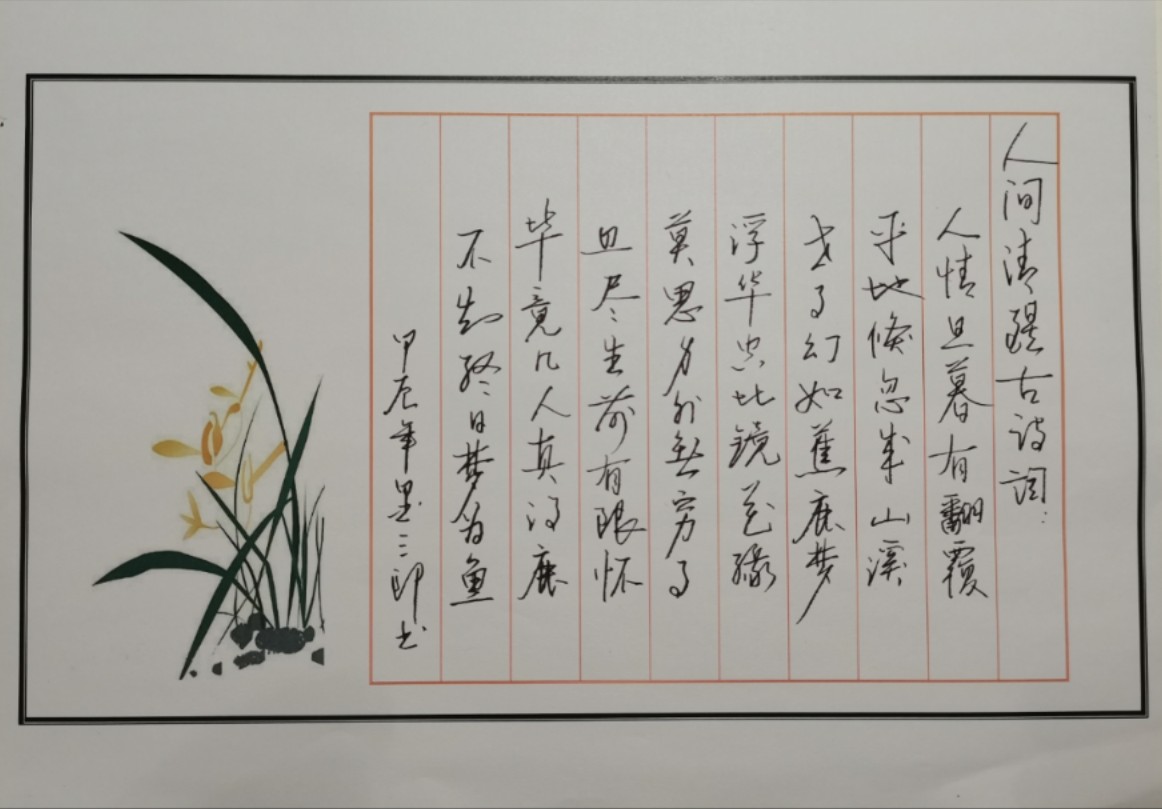 人间清醒古诗词:
人情旦暮有翻覆
平地倏忽成山溪
世事幻如蕉鹿梦
浮华空比镜花缘
莫思身外无穷事
且尽生前有限怀
毕竟几人真得鹿
不知终日梦为鱼
甲辰年墨三郎书